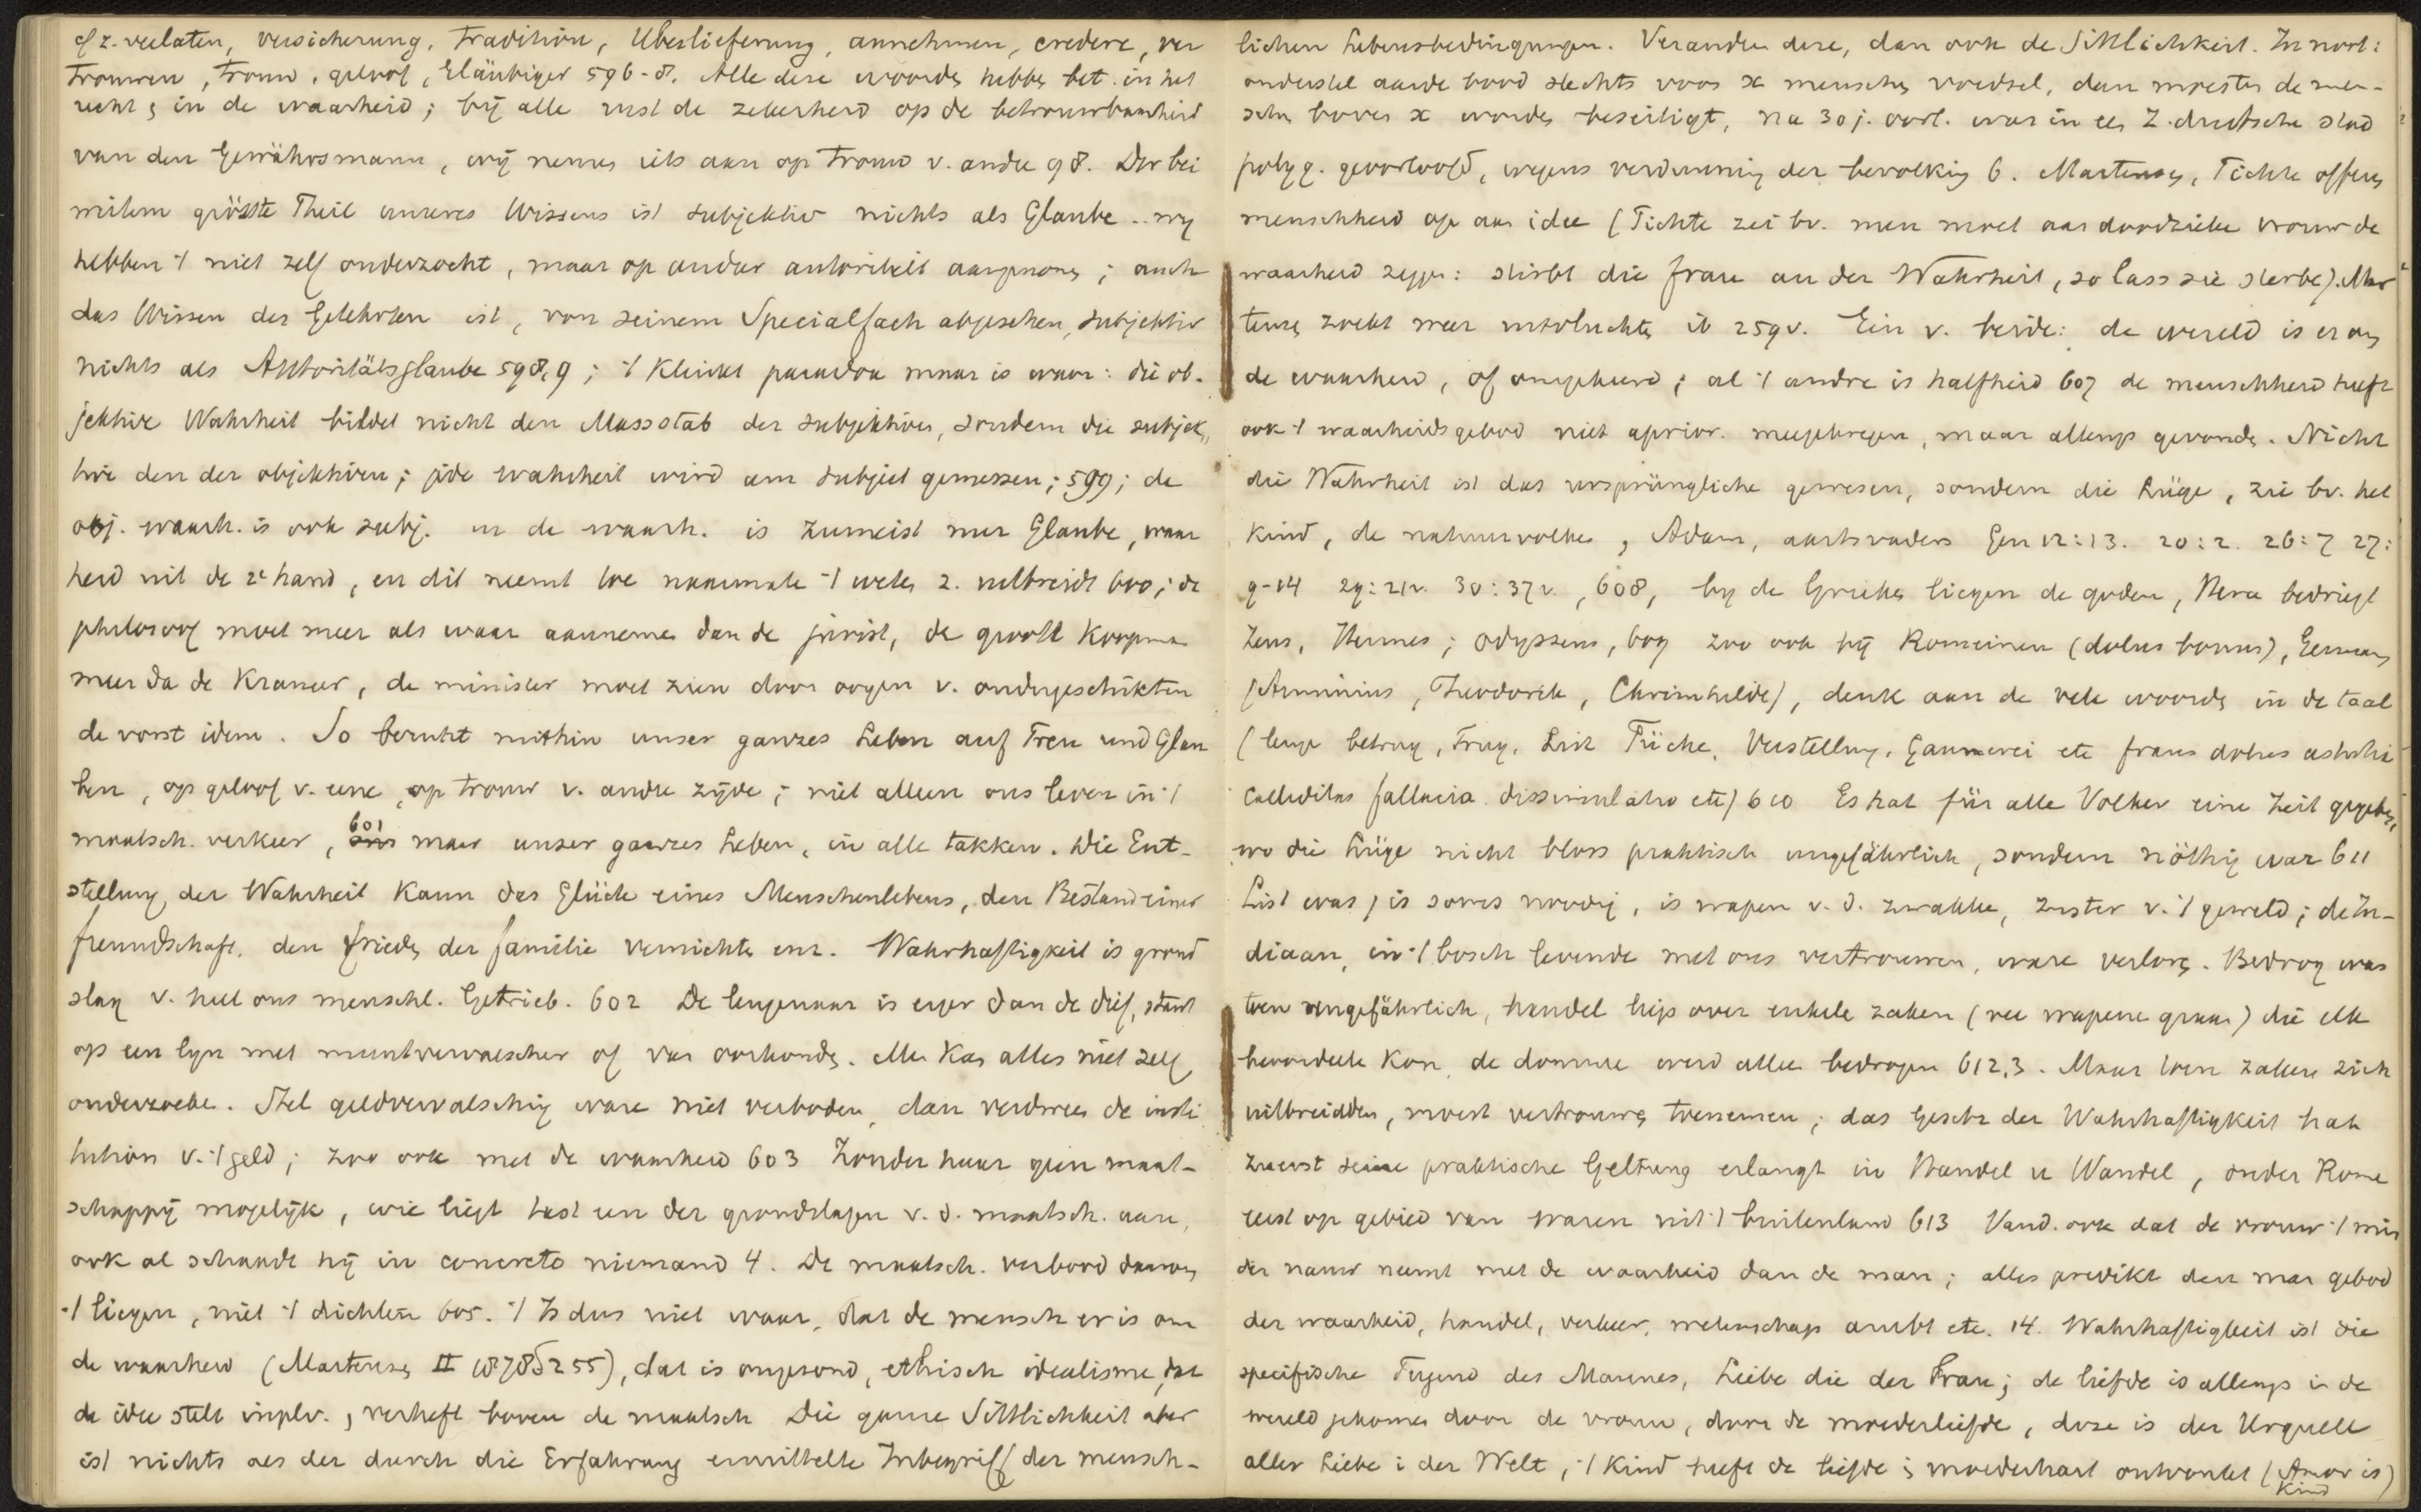 of z. verlaten, Versicherung, Tradition, Überlieferung, annehmen, credere, ver
trouwen, trouw, geloof, Gläubiger 596-8. Alle deze woorden hebben bet. in het
recht & in de waarheid; bij alle rust de zekerheid op de betrouwbaarheid
van den Gewährsmann, wij nemen iets aan op trouw v. andre 98. Der bei
weitem grösste Theil unseres Wissens ist subjektiv nichts als Glaube .. wij
hebben 't niet zelf onderzocht, maar op ander autoriteit aangenomen; auch
das Wissen des Gelehrten ist, von seinem Specialfach abgesehen, subjektiv
nichts als Autoritätsglaube 598,9; 't Klinkt paradox maar is waar: die ob-
jektive Wahrheit bildet nicht den Massstab der subjektiven, sondern die subjek„
tive den der objektiven; jede Wahrheit wird am Subjiet gemessen; 599; de
obj. waarh. is ook subj. en de waarh. is zumeist nur Glaube, waar
heid uit de 2e hand, en dit neemt toe naarmate 't weten z. uitbreidt 600; de
philosoof moet meer als waar aannemen dan de jurist, de groote Koopman
meer dan de Kramer, de minister moet zien door oogen v. ondergeschikten
de vorst idem. So beruht mithin unser ganzes Leben auf Treu und Glau
ben, op geloof v. eene, op trouw v. andre zijde; niet alleen ons leven in 't
maatsch. verkeer, 601 maar unser ganzes Leben, in alle takken. Die Ent-
stellung der Wahrheit Kann das Glück eines Menschenlebens, den Bestand einer
Freundschaft, den Frieden der Familie vernichten enz. Wahrhaftigkeit is grond
slag v. heel ons menschl. Getrieb. 602 De leugenaar is erger dan de dief, staat
op een lijn met muntvervalscher of van oorkonden. Men Kan alles niet zelf
onderzoeken. Stel geldvervalsching ware niet verboden, dan verdween de insti
tution v. 't geld; zoo ook met de waarheid 603 Zonder haar geen maat-
schappij mogelijk, wie liegt tast een der grondslagen v. d. maatsch. aan,
ook al schaadt hij in concreto niemand 4. De maatsch. verbood daarom
't liegen, niet 't dichten 605. 't Is dus niet waar, dat de mensch er is om
de waarheid (Martensen II 1878 S 255), dat is ongezond, ethisch idealisme, dat
de idee stelt inplv. & verheft boven de maatsch. Die ganze Sittlichkeit aber
ist nichts als der durch die Erfahrung ermittelte Inbegriff der mensch-
lichen Lebensbedingungen. Veranderen deze, dan ook de Sittlichkeit. In noord:
ondersteld aarde bood slechts voor x menschen voedsel, dan moesten de men-
schen boven x worden beseitigt, na 30 j. oorl. was in een Z. duitsche stad
polyg. geoorloofd, wegens verdunning der bevolking 6. Martensen, Fichte offeren
menschheid op aan idee (Fichte zei bv. men moet aan doodzieke vrouw de
waarheid zeggen: stirbt die Frau an der Wahrheit, so lass sie sterben). Mar
tensen zoekt meer uitvluchten ib 259v. Ein v. beide: de wereld is er om
de waarheid, of omgekeerd; al 't andre is halfheid 607 de menschheid heeft
ook 't waarheidsgebod niet aprior. meegekregen, maar allengs gevonden. Nicht
die Wahrheit ist das ursprüngliche gewesen, sondern die Lüge, zie bv. het
Kind, de natuurvolken, Adam, aartsvaders Gen 12:13. 20:2. 26:7 27:
9-14 29:21v. 30:37v., 608, bij de Grieken liegen de goden, Hera bedriegt
Zeus, Hermes; Odysseus, 609 zoo ook bij Romeinen (dolus bonus), Germanen
(Arminius, Theodorik, Chrimhilde), denk aan de vele woorden in de taal
(leugen betrog, Trug, List Tücke, Verstellung, Gaunerei etc fraus dolus astutia
calliditas fallacia dissimulatio etc) 610 Es hat für alle Völker eine Zeit gegeben,
wo die Lüge nicht bloss praktisch ungefährlich, sondern nöthig war 611
List was & is soms noodig, is wapen v. d. zwakke, zuster v. 't geweld; de In-
diaan, in 't bosch levende met ons vertrouwen, ware verloren. Bedrog was
toen ungefährlich, handel liep over enkele zaken (vee wapens graan) die elk
beoordeelen Kon, de domme werd alleen bedrogen 612,3. Maar toen zaken zich
uitbreidden, moest vertrouwen toenemen; das Gesetz der Wahrhaftigkeit hat
zuerst seine praktische Geltung erlangt in Handel u Wandel, onder Rome
eerst op gebied van waren uit 't buitenland 613 Vand. ook dat de vrouw 't min
der nauw neemt met de waarheid dan de man; alles predikt den man gebod
der waarheid, handel, verkeer, wetenschap ambt etc. 14. Wahrhaftigkeit ist die
specifische Tugend des Mannes, Liebe die der Frau; de liefde is allengs in de
wereld gekomen door de vrouw, door de moederliefde, deze is der Urquell
aller Liebe in der Welt, 't Kind heeft de liefde in moederhart ontvonkt (Amor is
Kind)